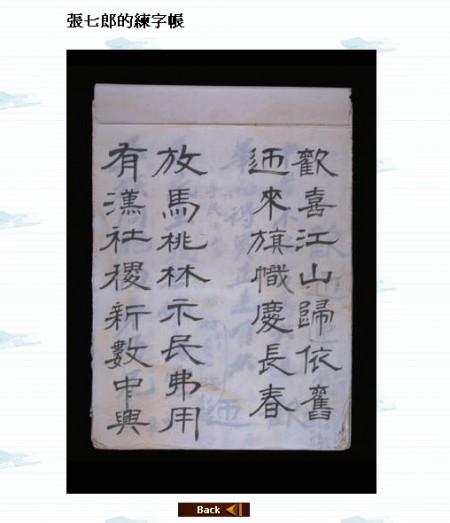 張七郎的練字帳
歡喜江山歸依舊
迊來旗幟慶長春
放馬桃林示民弗用
有漢社稷新數中興
Back